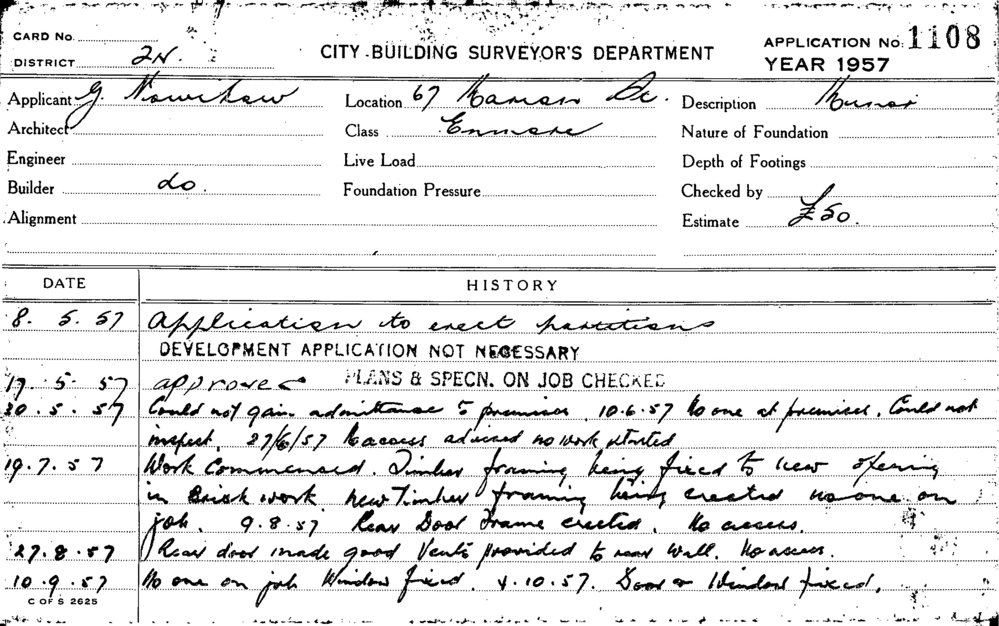 CARD No.
DISTRICT 2N.
CITY BUILDING SURVEYOR'S DEPARTMENT
APPLICATION No. 1108
YEAR 1957
Applicant G.
Location 67
Description
Architect
Class Enmore
Nature of Foundation
Engineer
Live Load
Depth of Footings
Builder do.
Foundation Pressure
Checked by
Alignment
Estimate £50.
DATE HISTORY
8. 5. 57 Application to erect partitions
DEVELOPMENT APPLICATION NOT NECESSARY
17. 5. 57 approved PLANS & SPECN. ON JOB CHECKED
30. 5. 57 Could not gain admittance to premises. 10.6.57 No one at premises. Could not
inspect. 27/6/57 No access advised no work started
19. 7. 57 Work Commenced. Timber framing being fixed to new opening
in Brick work new Timber framing being erected no one on
job. 9. 8. 57 Rear Door Frame erected. No access.
27. 8. 57 Rear door made good Vents provided to rear Wall. No access.
10. 9. 57 No one on job Window fixed. 4. 10. 57. Door & Window fixed.
C OF S 2625